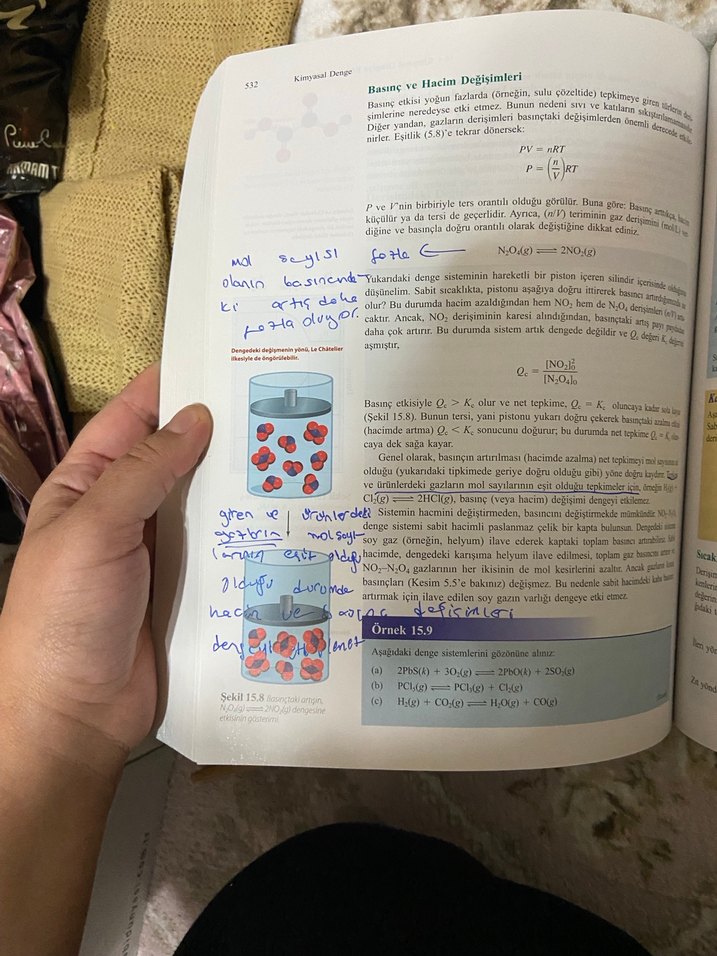 532
Kimyasal Denge
Basınç ve Hacim Değişimleri
Basınç etkisi yoğun fazlarda (örneğin, sulu çözeltide) tepkimeye giren türlerin
şimlerine neredeyse etki etmez. Bunun nedeni sıvı ve katıların
Diğer yandan, gazların derişimleri basınçtaki değişimlerden önemli derecede
nirler. Eşitlik (5.8)'e tekrar dönersek:
PV = nRT
P = (n/V)RT
P ve V'nin birbiriyle ters orantılı olduğu görülür. Buna göre: Basınç arttıkça,
küçülür ya da tersi de geçerlidir. Ayrıca, (n/V) teriminin gaz derişimini
diğine ve basınçla doğru orantılı olarak değiştiğine dikkat ediniz.
mol sayısı fazla ← N₂O₄(g) ⇌ 2NO₂(g)
olanın basıncında
ki artış daha
fazla oluyor.
Yukarıdaki denge sisteminin hareketli bir piston içeren silindir içerisinde
düşünelim. Sabit sıcaklıkta, pistonu aşağıya doğru ittirerek basıncı
olur? Bu durumda hacim azaldığından hem NO₂ hem de N₂O₄ derişimleri
caktır. Ancak, NO₂ derişiminin karesi alındığından, basınçtaki artış payı
daha çok artırır. Bu durumda sistem artık dengede değildir ve Q꜀ değeri K꜀
aşmıştır,
Q꜀ = [NO₂]₀² / [N₂O₄]₀
Dengedeki değişmenin yönü, Le Châtelier
ilkesiyle de öngörülebilir.
Basınç etkisiyle Q꜀ > K꜀ olur ve net tepkime, Q꜀ = K꜀ oluncaya kadar sola
(Şekil 15.8). Bunun tersi, yani pistonu yukarı doğru çekerek basınçtaki azalma
(hacimde artma) Q꜀ < K꜀ sonucunu doğurur; bu durumda net tepkime Q꜀ = K꜀
caya dek sağa kayar.
Genel olarak, basınçın artırılması (hacimde azalma) net tepkimeyi mol
olduğu (yukarıdaki tipkimede geriye doğru olduğu gibi) yöne doğru kaydırır.
ve ürünlerdeki gazların mol sayılarının eşit olduğu tepkimeler için, örneğin
Cl₂(g) ⇌ 2HCl(g), basınç (veya hacim) değişimi dengeyi etkilemez.
Sistemin hacmini değiştirmeden, basıncını değiştirmekde mümkündür.
denge sistemi sabit hacimli paslanmaz çelik bir kapta bulunsun. Dengedeki
soy gaz (örneğin, helyum) ilave ederek kaptaki toplam basıncı
hacimde, dengedeki karışıma helyum ilave edilmesi, toplam gaz basıncını
NO₂–N₂O₄ gazlarının her ikisinin de mol kesirlerini azaltır. Ancak gazların
basınçları (Kesim 5.5'e bakınız) değişmez. Bu nedenle sabit hacimdeki
artırmak için ilave edilen soy gazın varlığı dengeye etki etmez.
giren ve ürünlerdeki
gazların mol sayı
larının eşit olduğu
olduğu durumda
hacim ve basınç değişimleri
Şekil 15.8 Basınçtaki artışın,
N₂O₄(g) ⇌ 2NO₂(g) dengesine
etkisinin gösterimi.
Örnek 15.9
Aşağıdaki denge sistemlerini gözönüne alınız:
(a) 2PbS(k) + 3O₂(g) ⇌ 2PbO(k) + 2SO₂(g)
(b) PCl₅(g) ⇌ PCl₃(g) + Cl₂(g)
(c) H₂(g) + CO₂(g) ⇌ H₂O(g) + CO(g)